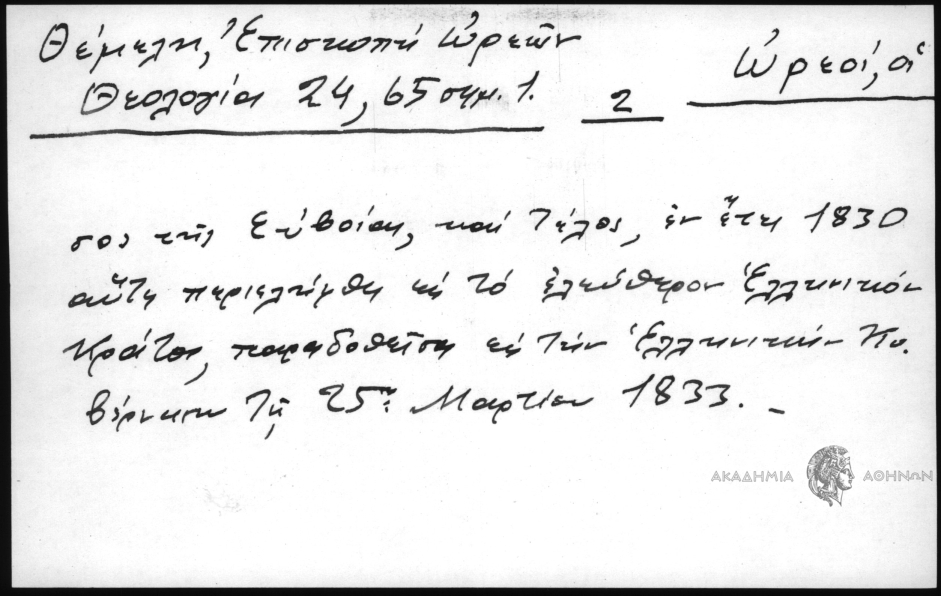 Θέμελη, Ἐπισκοπή Ὠρεῶν
Θεολογία 24, 65 σημ. 1.
2
Ὠρεοί, οἱ
σος τῆς Εὐβοίας, καί τέλος, ἐν ἔτει 1830
αὕτη περιελήφθη εἰς τό ἐλεύθερον Ἑλληνικόν
Κράτος, παραδοθεῖσα εἰς τήν Ἑλληνικήν Κυ.
βέρνησιν τῇ 25ῃ Μαρτίου 1833. _
ΑΚΑΔΗΜΙΑ ΑΘΗΝΩΝ